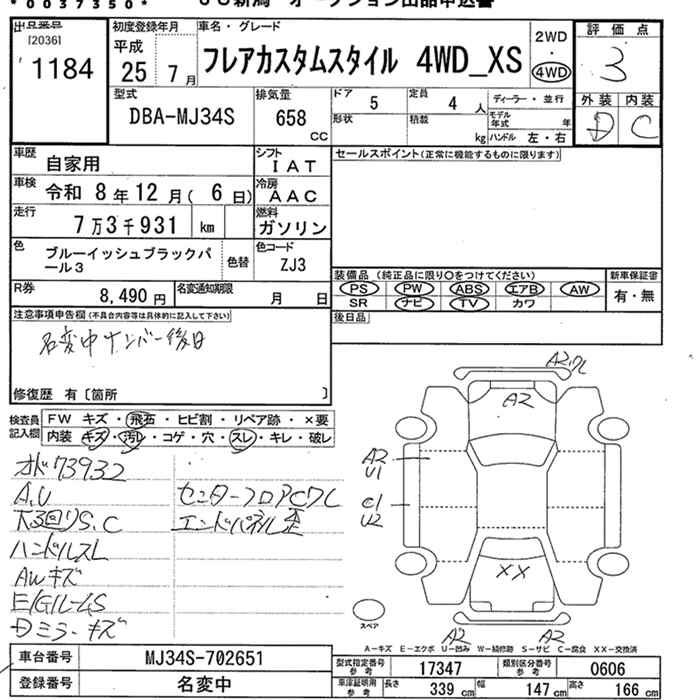 *0037350*
出品番号
[2036]
1184
初度登録年月
平成
25年7月
車名・グレード
フレアカスタムスタイル 4WD_XS
2WD
4WD
評価点
3
外装 内装
D C
型式
DBA-MJ34S
排気量
658
CC
ドア 5
定員 4人
形状
積載
kg
ディーラー・並行
モデル年式 年
ハンドル 左・右
車歴 自家用
シフト IAT
車検 令和 8年12月( 6日)
冷房 AAC
走行 7万3千931 km
燃料 ガソリン
色 ブルーイッシュブラックパール3
色替
色コード ZJ3
R券 8,490円
名変通知期限 月 日
セールスポイント(正常に機能するものに限ります)
装備品 (純正品に限り○をつけてください)
PS PW ABS エアB AW
SR ナビ TV カワ
新車保証書
有・無
後日品
注意事項申告欄(不具合内容等は具体的に記入して下さい)
名変中ナンバー後日
修復歴 有〔箇所 〕
検査員記入欄
FW キズ・飛石・ヒビ割・リペア跡・×要
内装 キズ・汚レ・コゲ・穴・スレ・キレ・破レ
オド73932
A.U
下廻りS.C
ハンドルスレ
AWキズ
E/Gルーム S
Dミラーキズ
センターフロアCワレ
エンドパネル歪
A2ワレ
A2
A2
U1
C1
U2
XX
A2
A2
スペア
A-キズ E-エクボ U-凹み W-補修跡 S-サビ C-腐食 XX-交換済
車台番号 MJ34S-702651
登録番号 名変中
型式指定番号 参考 17347
類別区分番号 参考 0606
車庫証明用 参考 長さ 339 cm 幅 147 cm 高さ 166 cm